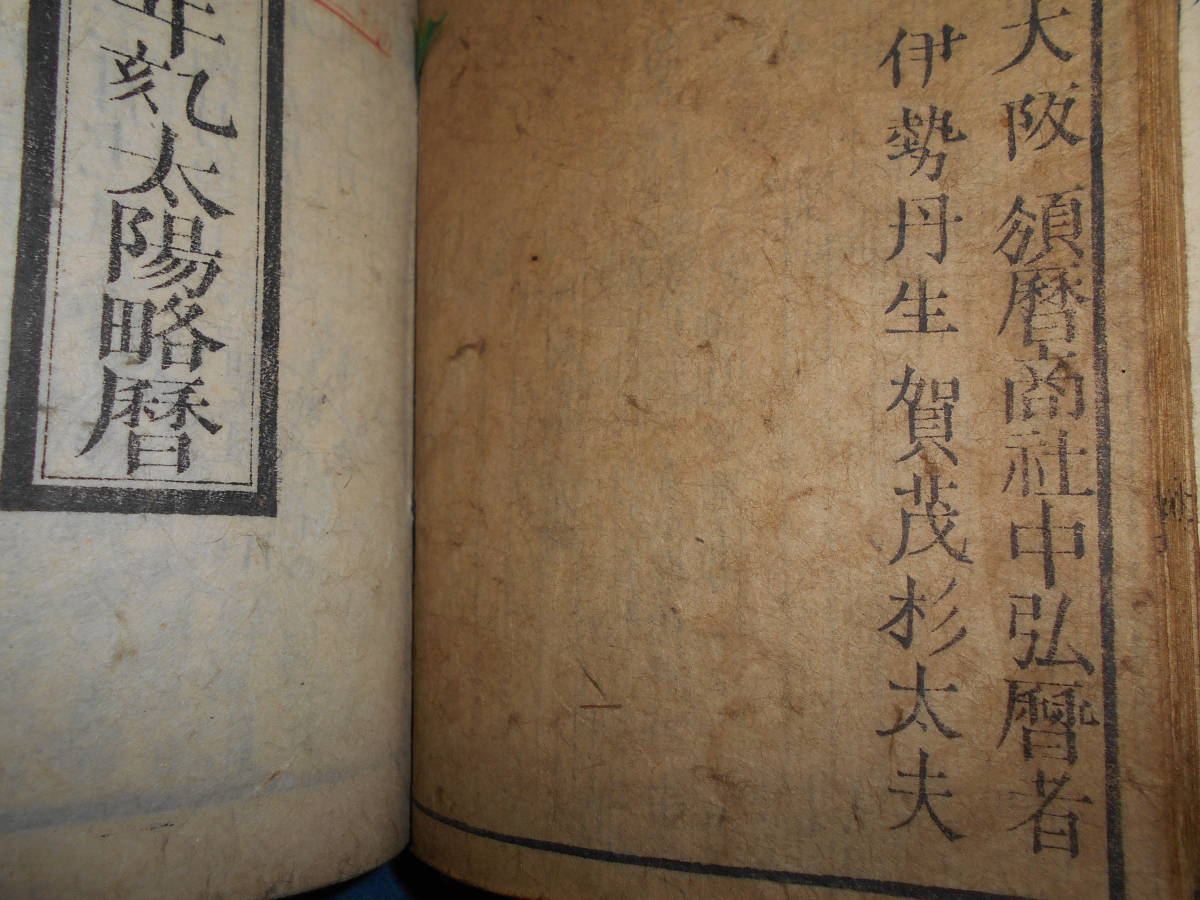 大阪 頒暦商社中弘暦者
伊勢丹生 賀茂杉太夫
年乙亥太陽略暦